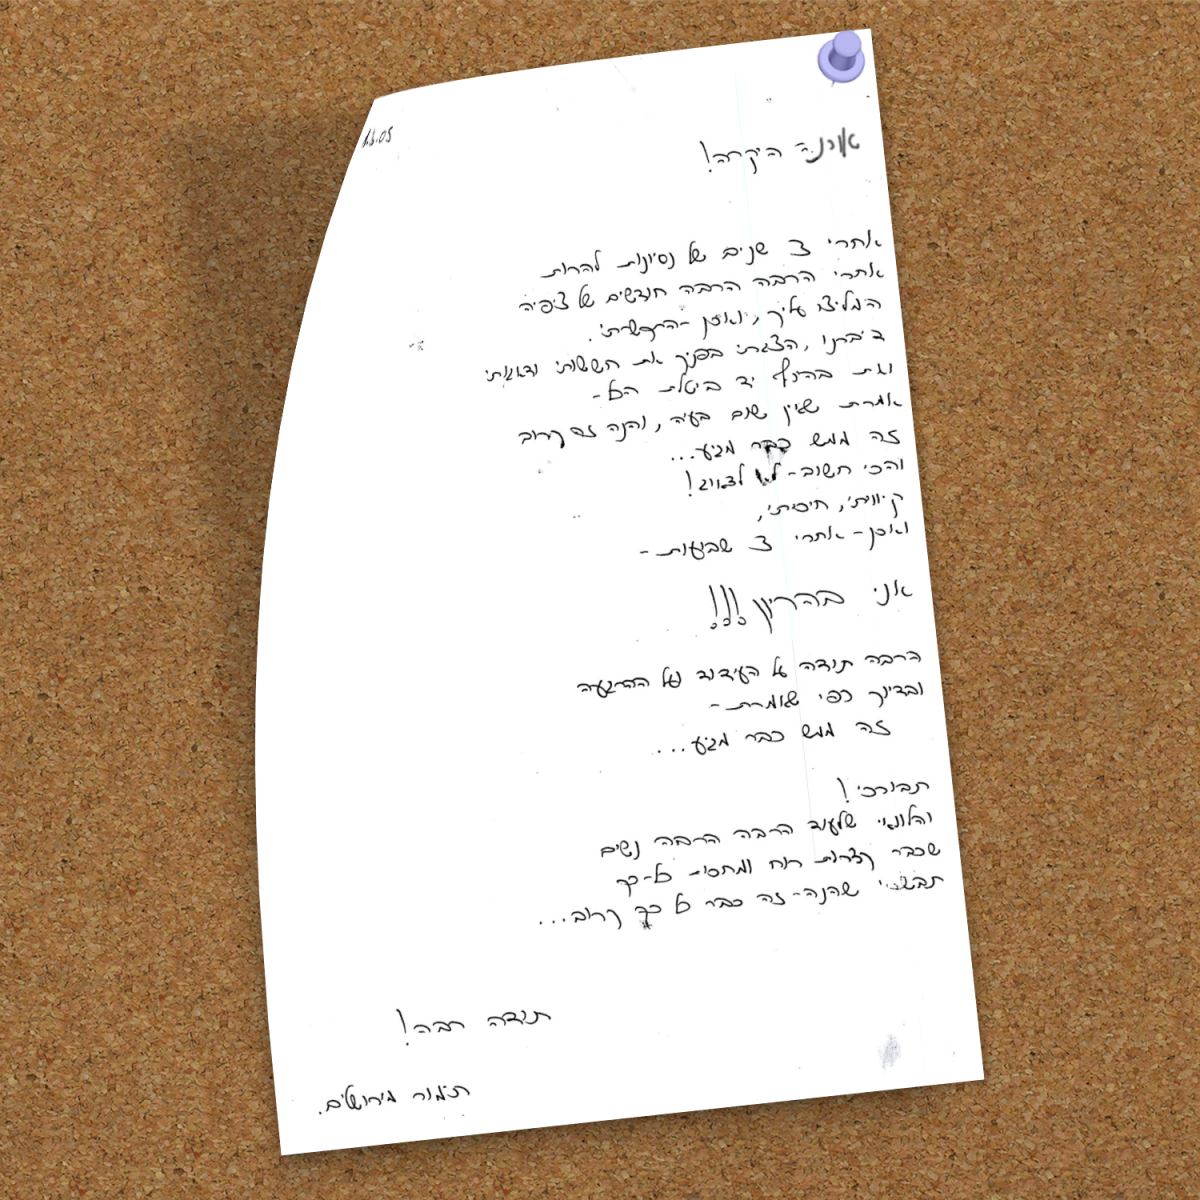 1.5.05
אורנה היקרה!
אחרי 3 שנים של נסיונות להרות
אחרי הרבה הרבה חודשים של ציפיה
המליצו עליך, ואכן - התקשרתי.
דיברנו, הצגתי בפניך את חששותי ודאגותי
ואת בהינף יד ביטלת הכל -
אמרת שאין שום בעיה, והנה זה קרוב
זה ממש כבר מגיע...
והכי חשוב - לא לדאוג!
קיוויתי, חיכיתי,
ואכן - אחרי 3 שבועות -
אני בהריון!!!
הרבה תודה על העידוד ועל ההרגעה
ובדיוק כפי שאמרת -
זה ממש כבר מגיע...
תבורכי!
והלוואי שלעוד הרבה הרבה נשים
שכבר קצרות רוח ומחכות כל-כך
תבשרי שהנה - זה כבר כל כך קרוב...
תודה רבה!
תמר מירושלים.